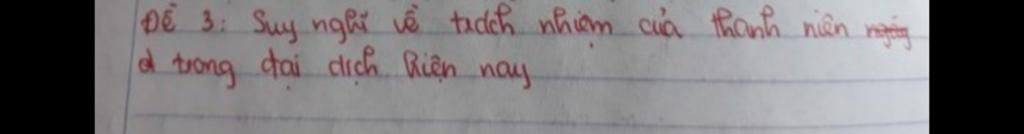 Đề 3: Suy nghĩ về trách nhiệm của thanh niên
trong đại dịch hiện nay